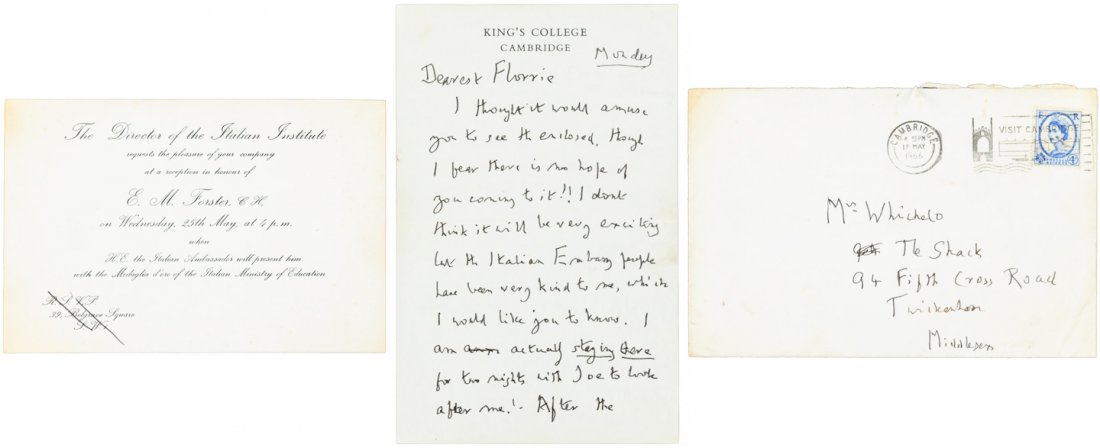 The Director of the Italian Institute
requests the pleasure of your company
at a reception in honour of
E. M. Forster, C.H.
on Wednesday, 25th May, at 4 p.m.
when
H.E. the Italian Ambassador will present him
with the Medaglia d'oro of the Italian Ministry of Education
R.S.V.P.
39, Belgrave Square
S.W.1
KING'S COLLEGE
CAMBRIDGE
Monday
Dearest Florrie
I thought it would amuse
you to see the enclosed, though
I fear there is no hope of
you coming to it!! I dont
think it will be very exciting
but the Italian Embassy people
have been very kind to me, which
I would like you to know. I
am actually staying there
for two nights with Joe to look
after me! After the
CAMBRIDGE
PM
17 MAY
1966
VISIT CAMBRIDGE
E R
Mrs Whichelo
The Shack
94 Fifth Cross Road
Twickenham
Middlesex